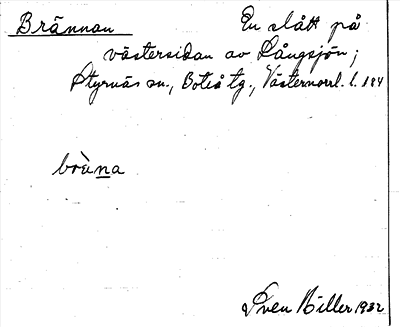 Brännan En slått på
västersidan av Långsjön;
Styrnäs sn., Boteå tg., Västernorrl. l. 184
brὲna
Sven Hiller 1932